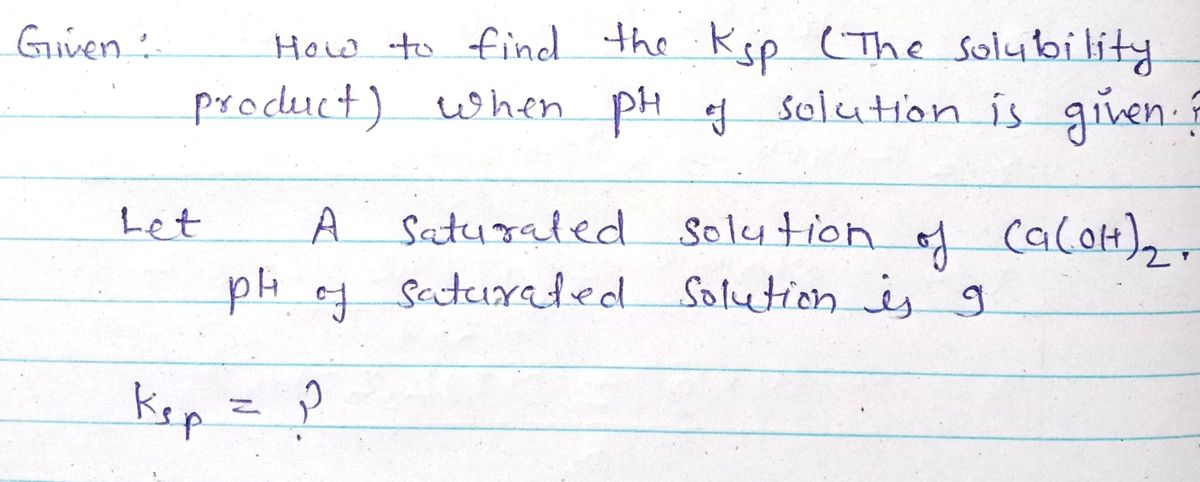 Given :- How to find the Ksp (The solubility
product) when pH of solution is given.?
Let A saturated solution of Ca(OH)2.
pH of saturated solution is 9
Ksp = ?